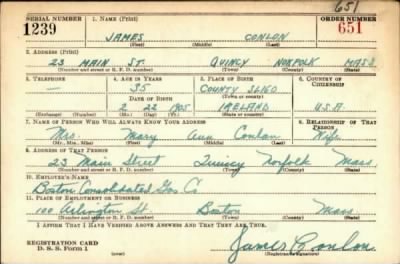 651
SERIAL NUMBER 1. NAME (Print) ORDER NUMBER
1239 JAMES CONLON 651
(First) (Middle) (Last)
2. ADDRESS (Print)
23 MAIN ST. QUINCY NORFOLK MASS
(Number and street or R. F. D. number) (Town) (County) (State)
3. TELEPHONE 4. AGE IN YEARS 5. PLACE OF BIRTH 6. COUNTRY OF CITIZENSHIP
— 35 COUNTY SLIGO
DATE OF BIRTH (Town or county)
2 22 1905 IRELAND U.S.A
(Mo.) (Day) (Yr.) (State or country)
7. NAME OF PERSON WHO WILL ALWAYS KNOW YOUR ADDRESS 8. RELATIONSHIP OF THAT PERSON
Mrs. Mary Ann Conlon Wife
(Mr., Mrs., Miss) (First) (Middle) (Last)
9. ADDRESS OF THAT PERSON
23 Main Street Quincy Norfolk Mass
(Number and street or R. F. D. number) (Town) (County) (State)
10. EMPLOYER'S NAME
Boston Consolidated Gas Co
11. PLACE OF EMPLOYMENT OR BUSINESS
100 Arlington St Boston Mass
(Number and street or R. F. D. number) (Town) (County) (State)
I AFFIRM THAT I HAVE VERIFIED ABOVE ANSWERS AND THAT THEY ARE TRUE.
REGISTRATION CARD
D. S. S. Form 1 (over) James Conlon
(Registrant's signature)